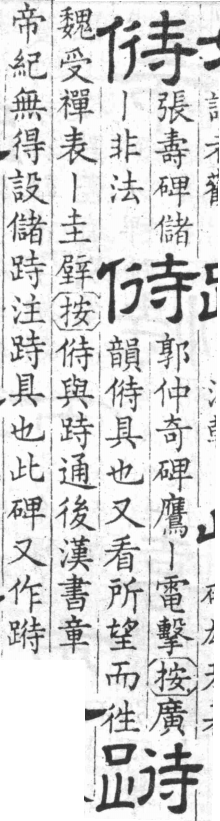 偫
張壽碑儲
丨非法
偫
郭仲奇碑鷹丨電擊按廣
韻偫具也又看所望而徃
跱
魏受禪表丨圭璧按偫與跱通後漢書章
帝紀無得設儲跱注跱具也此碑又作跱